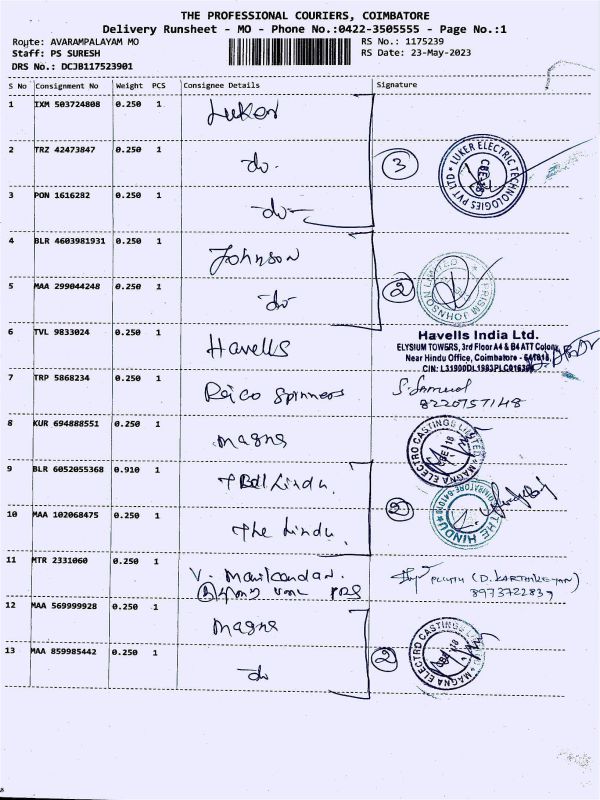 THE PROFESSIONAL COURIERS, COIMBATORE
Delivery Runsheet - MO - Phone No.:0422-3505555 - Page No.:1
Route: AVARAMPALAYAM MO RS No.: 1175239
Staff: PS SURESH RS Date: 23-May-2023
DRS No.: DCJB117523901
S No Consignment No Weight PCS Consignee Details Signature
1 IXM 503724808 0.250 1 Luker
2 TRZ 42473847 0.250 1 do. 3 LUKER ELECTRIC TECHNOLOGIES PVT LTD CBE-18
3 PON 1616282 0.250 1 -do-
4 BLR 4603981931 0.250 1 Johnson
5 MAA 299044248 0.250 1 do 2 PRISM JOHNSON LIMITED
6 TVL 9833024 0.250 1 Havells Havells India Ltd.
ELYSIUM TOWERS, 3rd Floor A4 & B4 ATT Colony,
Near Hindu Office, Coimbatore - 641018,
CIN: L31900DL1983PLC01630
7 TRP 5868234 0.250 1 Reico Spinners S. Samuel
8220757148
8 KUR 694888551 0.250 1 magna MAGNA ELECTRO CASTINGS LIMITED CBE-18
9 BLR 6052055368 0.910 1 Hindu. 2 THE HINDU COIMBATORE
10 MAA 102068475 0.250 1 The Hindu.
11 MTR 2331060 0.250 1 V. Manikandan. (D. KARTHIKEYAN)
8973722839
12 MAA 569999928 0.250 1 magna
13 MAA 859985442 0.250 1 do 2 MAGNA ELECTRO CASTINGS LIMITED CBE-18